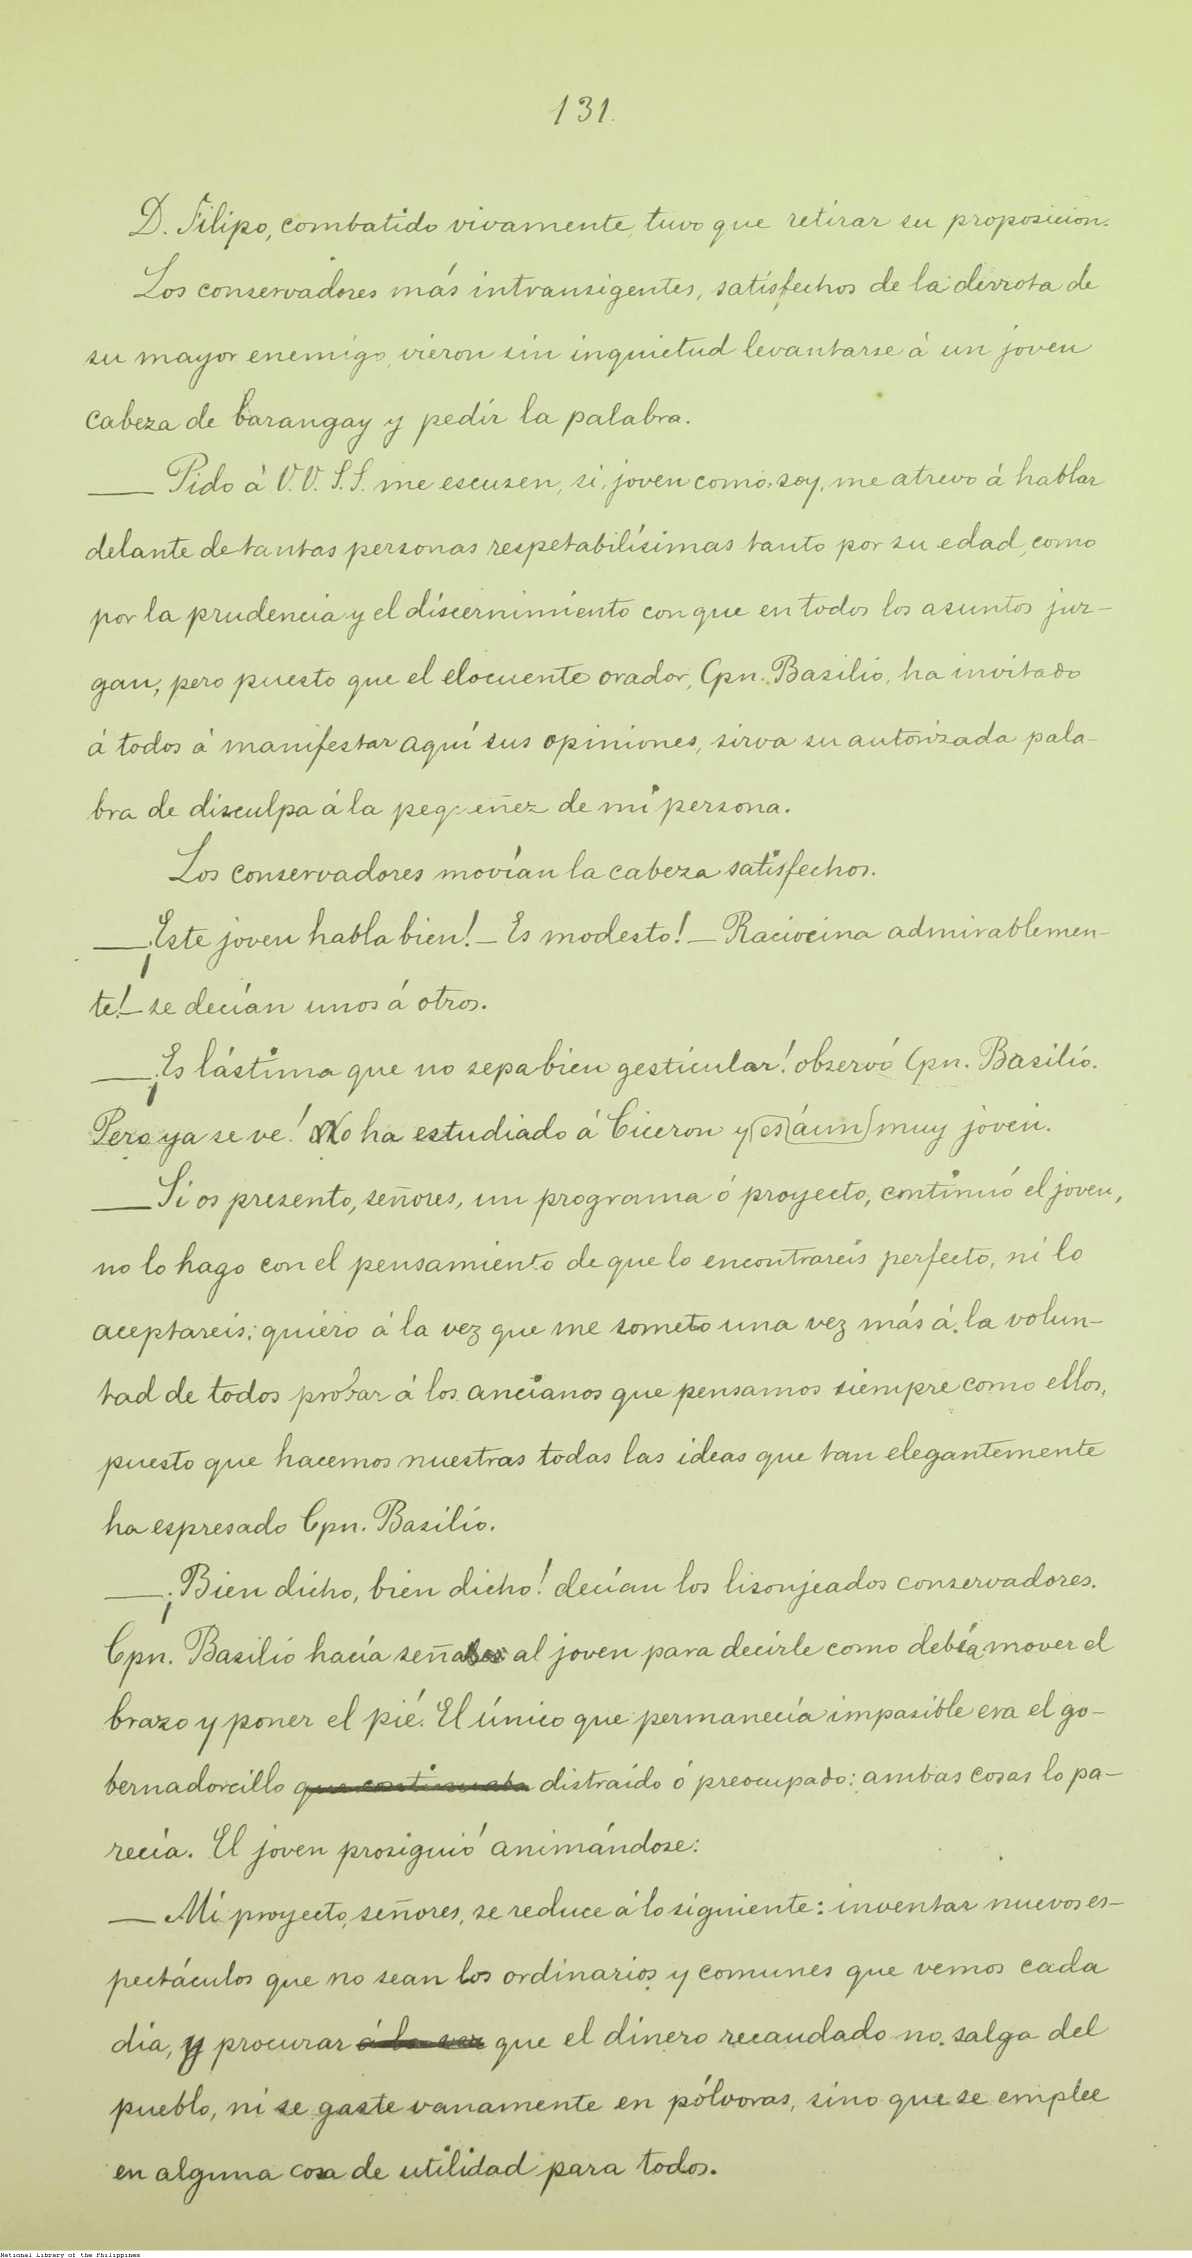 131.
D. Filipo, combatido vivamente, tuvo que retirar su proposicion.
Los conservadores más intransigentes, satisfechos de la derrota de
su mayor enemigo, vieron sin inquietud levantarse á un joven
cabeza de barangay y pedir la palabra.
— Pido á V.V. S.S. me escusen, si, joven como soy, me atrevo á hablar
delante de tantas personas respetabilísimas tanto por su edad, como
por la prudencia y el discernimiento con que en todos los asuntos juz-
gan, pero puesto que el elocuente orador, Cpn. Basilio, ha invitado
á todos á manifestar aquí sus opiniones, sirva su autorizada pala-
bra de disculpa á la pequeñez de mi persona.
Los conservadores movían la cabeza satisfechos.
— ¡Este joven habla bien! — Es modesto! — Raciocina admirablemen-
te! — se decían unos á otros.
— ¡Es lástima que no sepa bien gesticular! observó Cpn. Basilio.
Pero ya se ve! No ha estudiado á Ciceron y es áun muy joven.
— Si os presento, señores, un programa ó proyecto, continuó el joven,
no lo hago con el pensamiento de que lo encontrareis perfecto, ni lo
aceptareis; quiero á la vez que me someto una vez más á la volun-
tad de todos probar á los ancianos que pensamos siempre como ellos,
puesto que hacemos nuestras todas las ideas que tan elegantemente
ha espresado Cpn. Basilio.
— ¡Bien dicho, bien dicho! decían los lisonjeados conservadores.
Cpn. Basilio hacía señas al joven para decirle como debía mover el
brazo y poner el pié. El único que permanecía impasible era el go-
bernadorcillo que continuaba distraido ó preocupado: ambas cosas lo pa-
recía. El joven prosiguió animándose:
— Mi proyecto, señores, se reduce á lo siguiente: inventar nuevos es-
pectáculos que no sean los ordinarios y comunes que vemos cada
día, y procurar á la vez que el dinero recaudado no salga del
pueblo, ni se gaste vanamente en pólvoras, sino que se emplée
en alguna cosa de utilidad para todos.
National Library of the Philippines